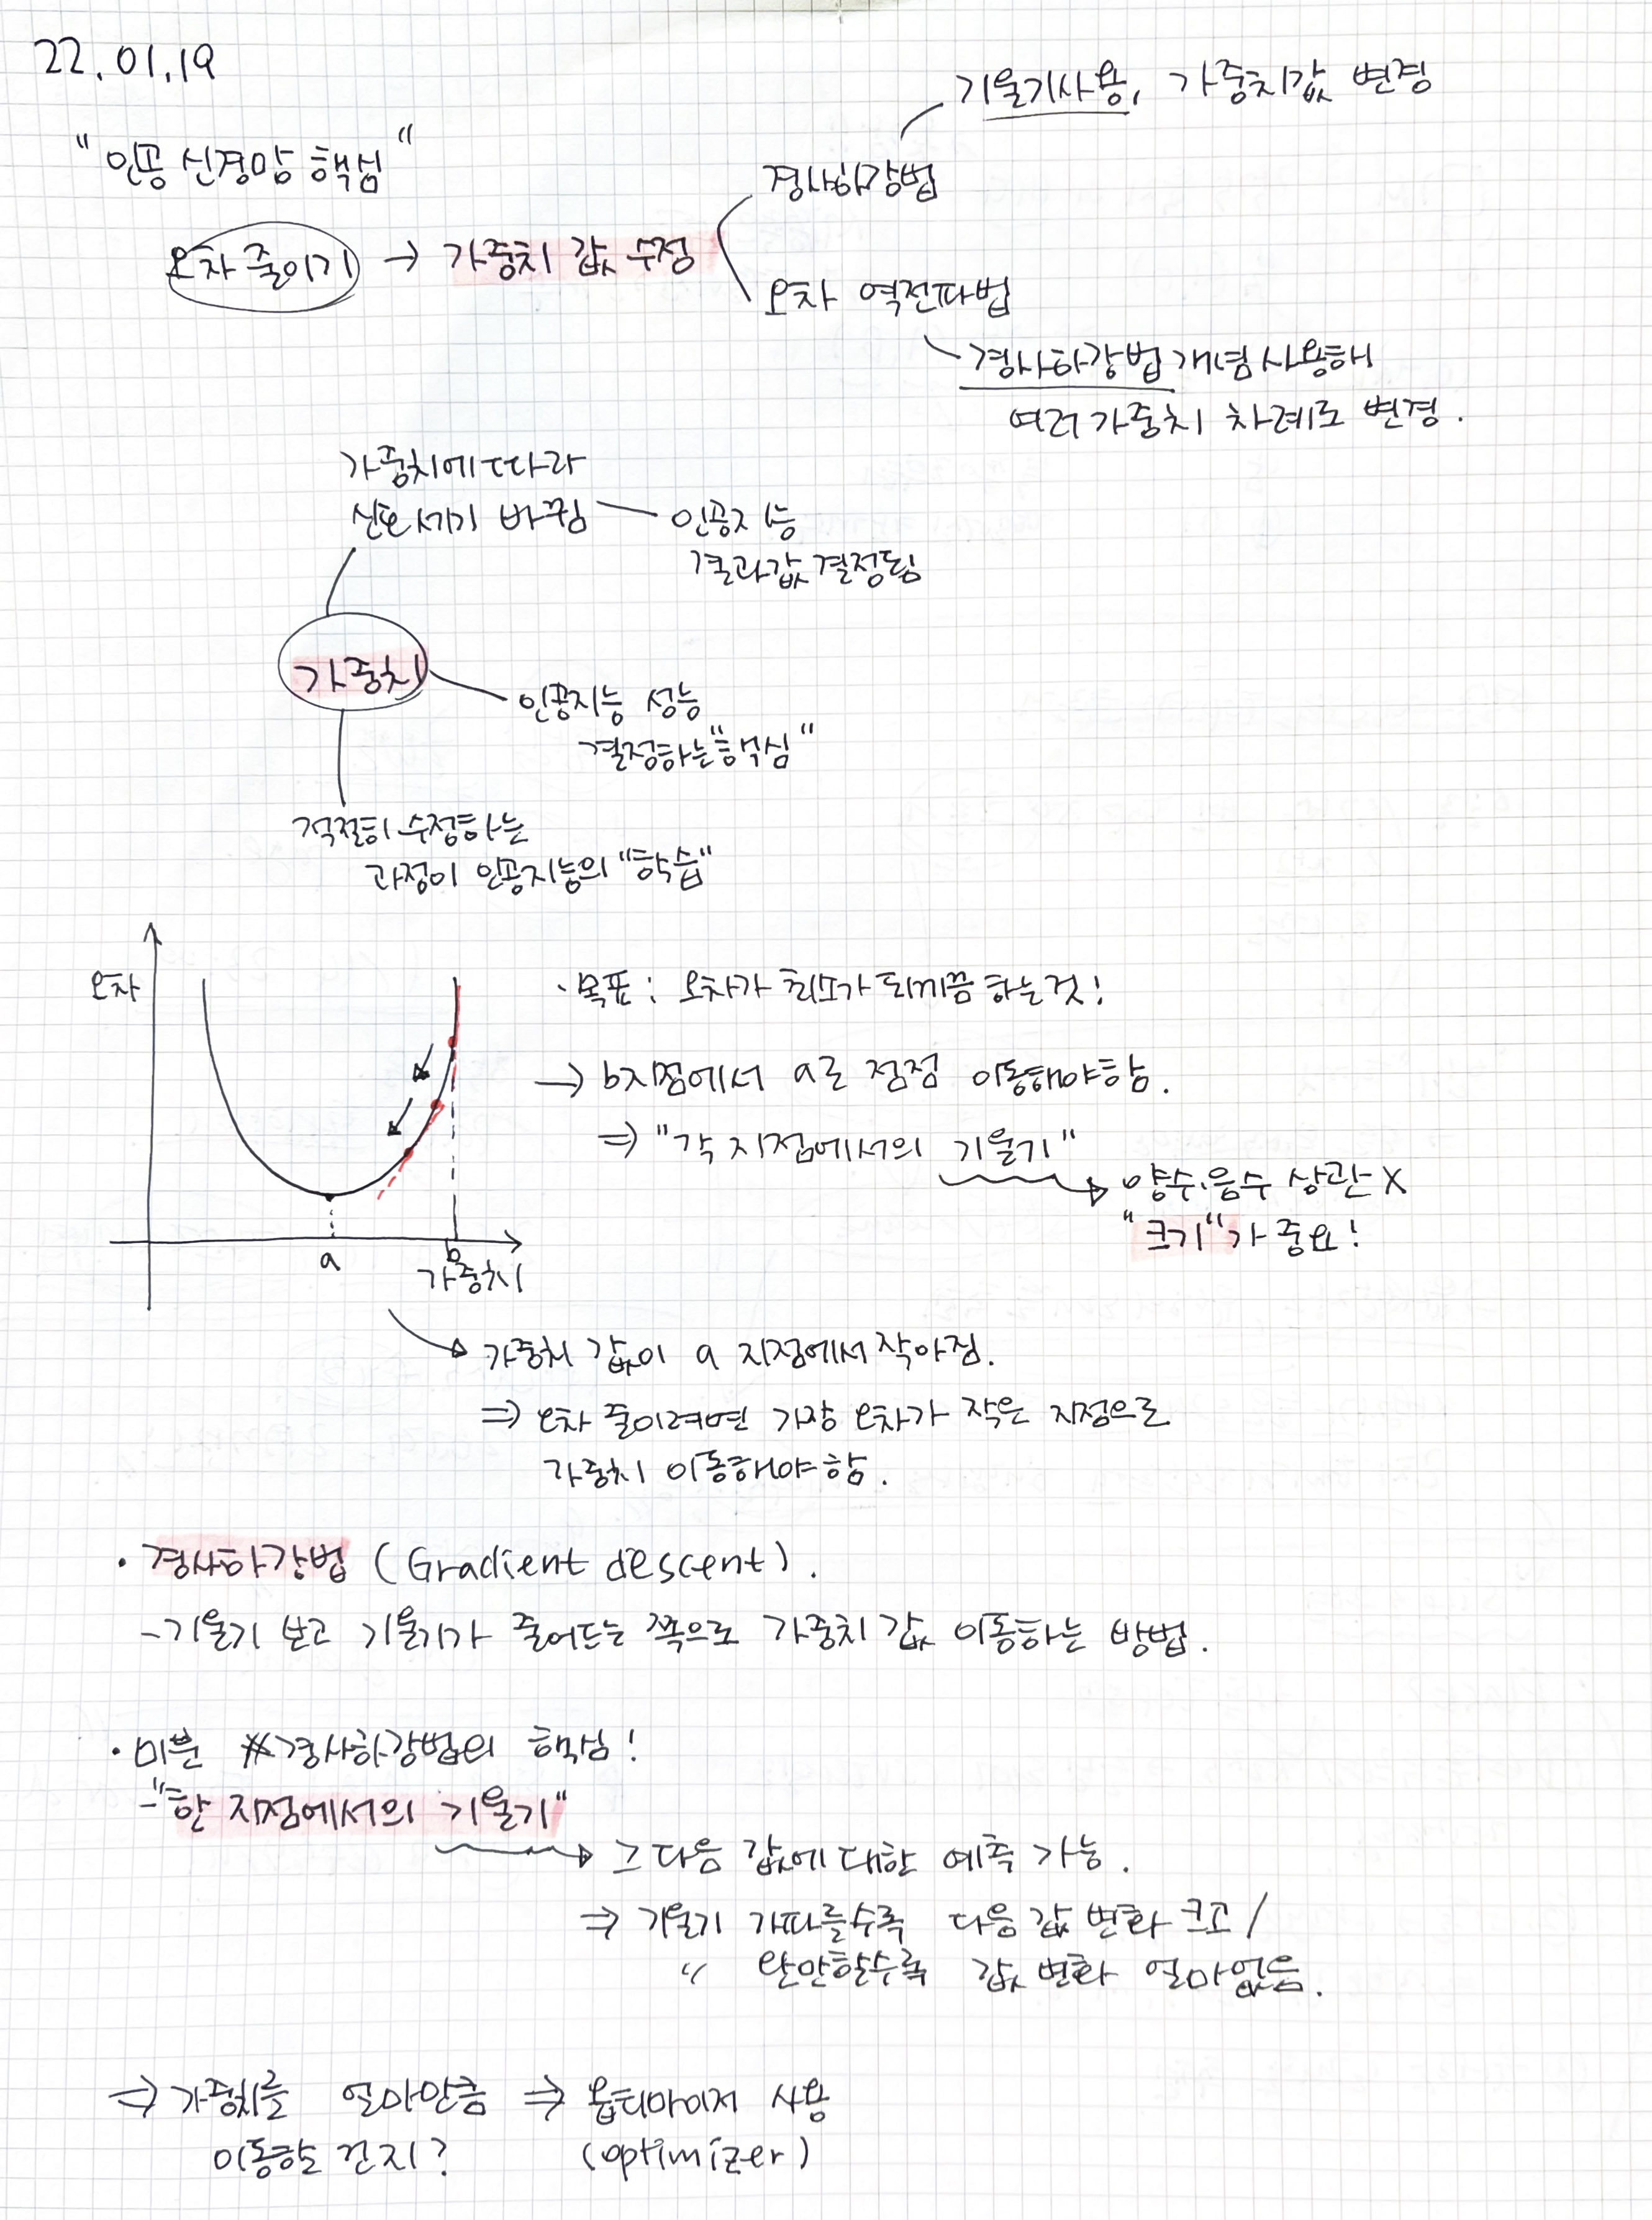 22.01.19
"인공 신경망 핵심"
오차 줄이기 → 가중치 값 수정
경사하강법
기울기사용, 가중치값 변경
오차 역전파법
경사하강법 개념 사용해
여러 가중치 차례로 변경.
가중치에 따라
신호세기 바뀜
인공지능
결과값 결정됨
가중치
인공지능 성능
결정하는 "핵심"
적절히 수정하는
과정이 인공지능의 "학습"
오차
a
b
가중치
· 목표 : 오차가 최소가 되게끔 하는것!
→ b지점에서 a로 점점 이동해야함.
⇒ "각 지점에서의 기울기"
양수, 음수 상관 X
"크기"가 중요!
가중치 값이 a 지점에서 작아짐.
⇒ 오차 줄이려면 가장 오차가 작은 지점으로
가중치 이동해야 함.
· 경사하강법 (Gradient descent).
- 기울기 보고 기울기가 줄어드는 쪽으로 가중치 값 이동하는 방법.
· 미분 ※경사하강법의 핵심!
- "한 지점에서의 기울기"
그 다음 값에 대한 예측 가능.
⇒ 기울기 가파를수록 다음 값 변화 크고 /
" 완만할수록 값 변화 얼마없음.
⇒ 가중치를 얼마만큼 ⇒ 옵티마이저 사용
이동할 건지? (optimizer)